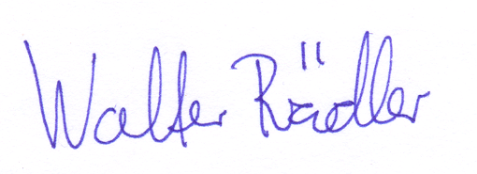 Walter Rädler